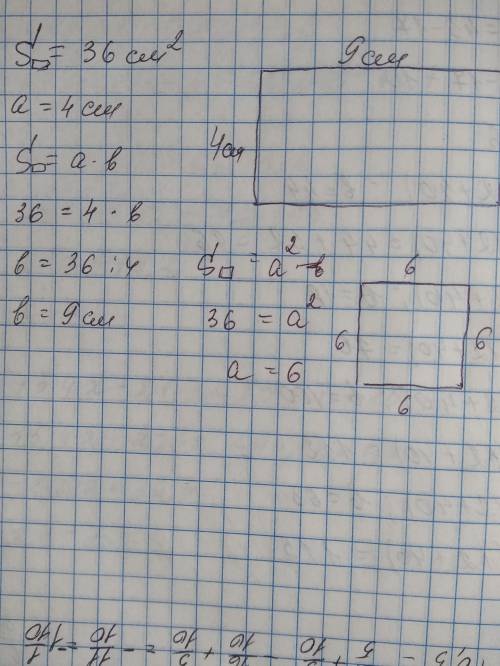 S▭ = 36 см²
a = 4 см
S▭ = a · в
36 = 4 · в
в = 36 : 4
в = 9 см
9 см
4 см
S□ = a²
36 = a²
a = 6
6
6
6
6